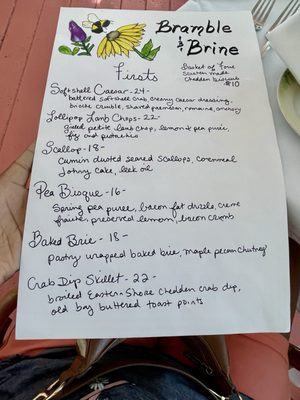 Bramble
& Brine
Firsts
Basket of four
scratch made
cheddar biscuits
$10
Softshell Caesar - 24 -
battered softshell crab, creamy caesar dressing,
brioche crumble, shaved parmesan, romaine, anchovy
Lollipop Lamb Chops - 22 -
grilled petite lamb chop, lemon & pea purée,
fig and pistachio
Scallop - 18 -
Cumin dusted seared scallops, cornmeal
Johnny cake, leek oil
Pea Bisque - 16 -
Spring pea puree, bacon fat drizzle, creme
fraiche, preserved lemon, bacon crumb
Baked Brie - 18 -
pastry wrapped baked brie, maple pecan chutney
Crab Dip Skillet - 22 -
broiled Eastern Shore cheddar crab dip,
old bay buttered toast points